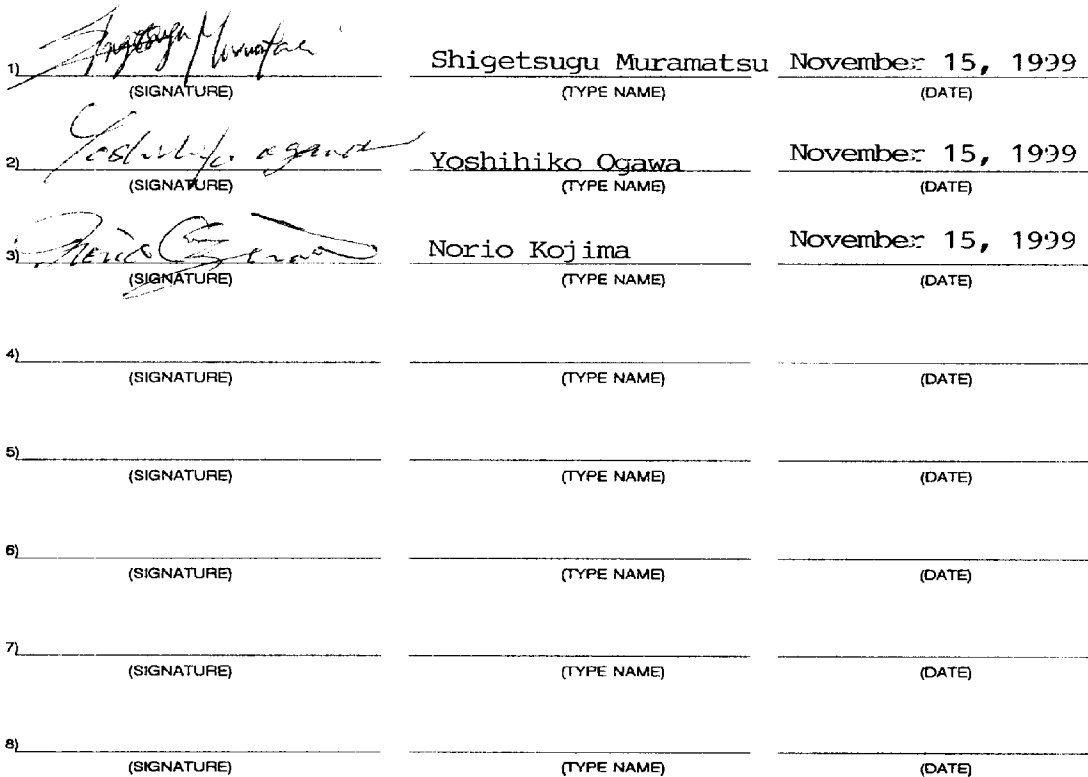 1) Shigetsugu Muramatsu Shigetsugu Muramatsu November 15, 1999
(SIGNATURE) (TYPE NAME) (DATE)
2) Yoshihiko Ogawa Yoshihiko Ogawa November 15, 1999
(SIGNATURE) (TYPE NAME) (DATE)
3) Norio Norio Kojima November 15, 1999
(SIGNATURE) (TYPE NAME) (DATE)
4)
(SIGNATURE) (TYPE NAME) (DATE)
5)
(SIGNATURE) (TYPE NAME) (DATE)
6)
(SIGNATURE) (TYPE NAME) (DATE)
7)
(SIGNATURE) (TYPE NAME) (DATE)
8)
(SIGNATURE) (TYPE NAME) (DATE)